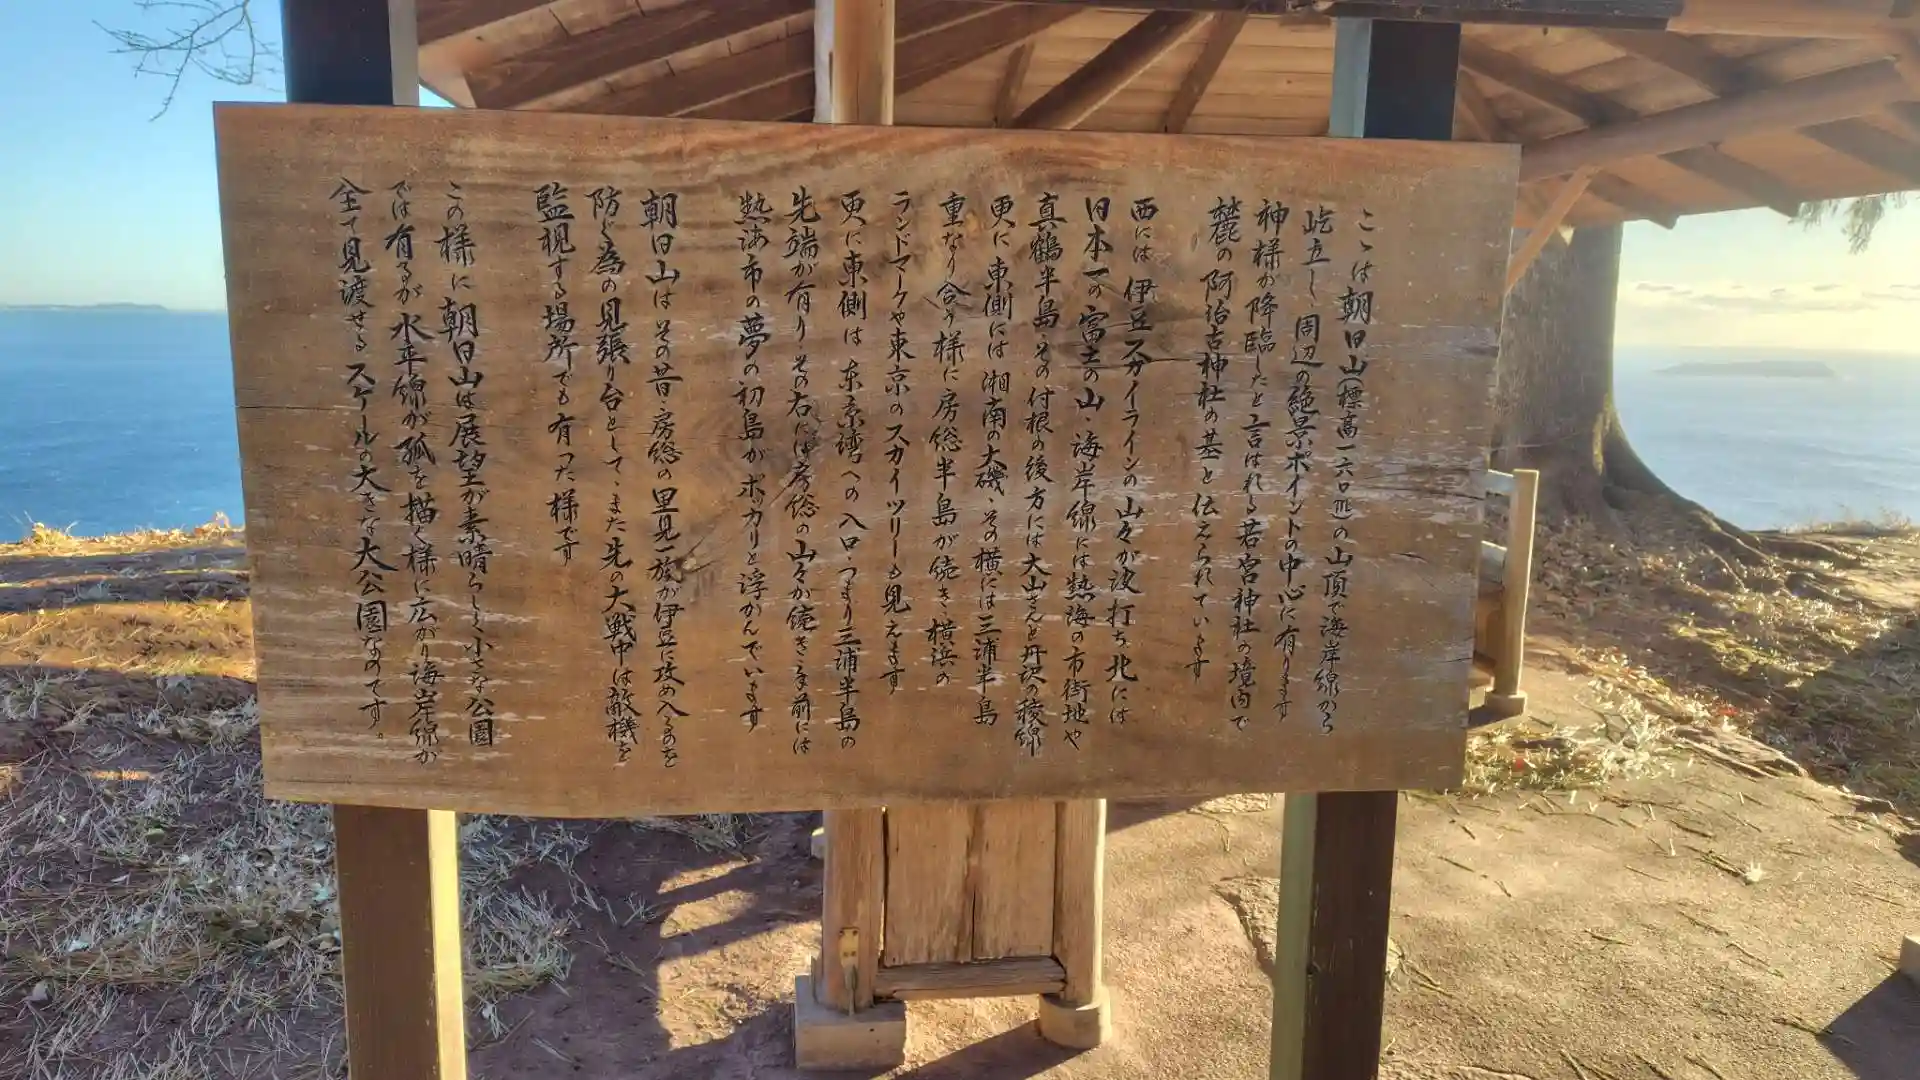 こゝは朝日山(標高一六〇㍍)の山頂で海岸線から
屹立し周辺の絶景ポイントの中心に有ります
神様が降臨したと言はれる若宮神社の境内で
麓の阿治古神社の基と伝えられています
西には伊豆スカイラインの山々が波打ち北には
日本一の富士の山、海岸線には熱海の市街地や
真鶴半島、その付根の後方には大山さんと丹沢の稜線
更に東側には湘南の大磯、その横には三浦半島
重なり合う様に房総半島が続き、横浜の
ランドマークや東京のスカイツリーも見えます
更に東側は東京湾への入口、つまり三浦半島の
先端が有り、その右には房総の山々が続き、真前には
熱海市の夢の初島がポッカリと浮かんでいます
朝日山はその昔、房総の里見一族が伊豆に攻め入るのを
防ぐ為の見張り台として、また先の大戦中は敵機を
監視する場所でも有った様です
この様に朝日山は展望が素晴らしく小さな公園
では有るが水平線が弧を描く様に広がり海岸線が
全て見渡せるスケールの大きな大公園なのです。